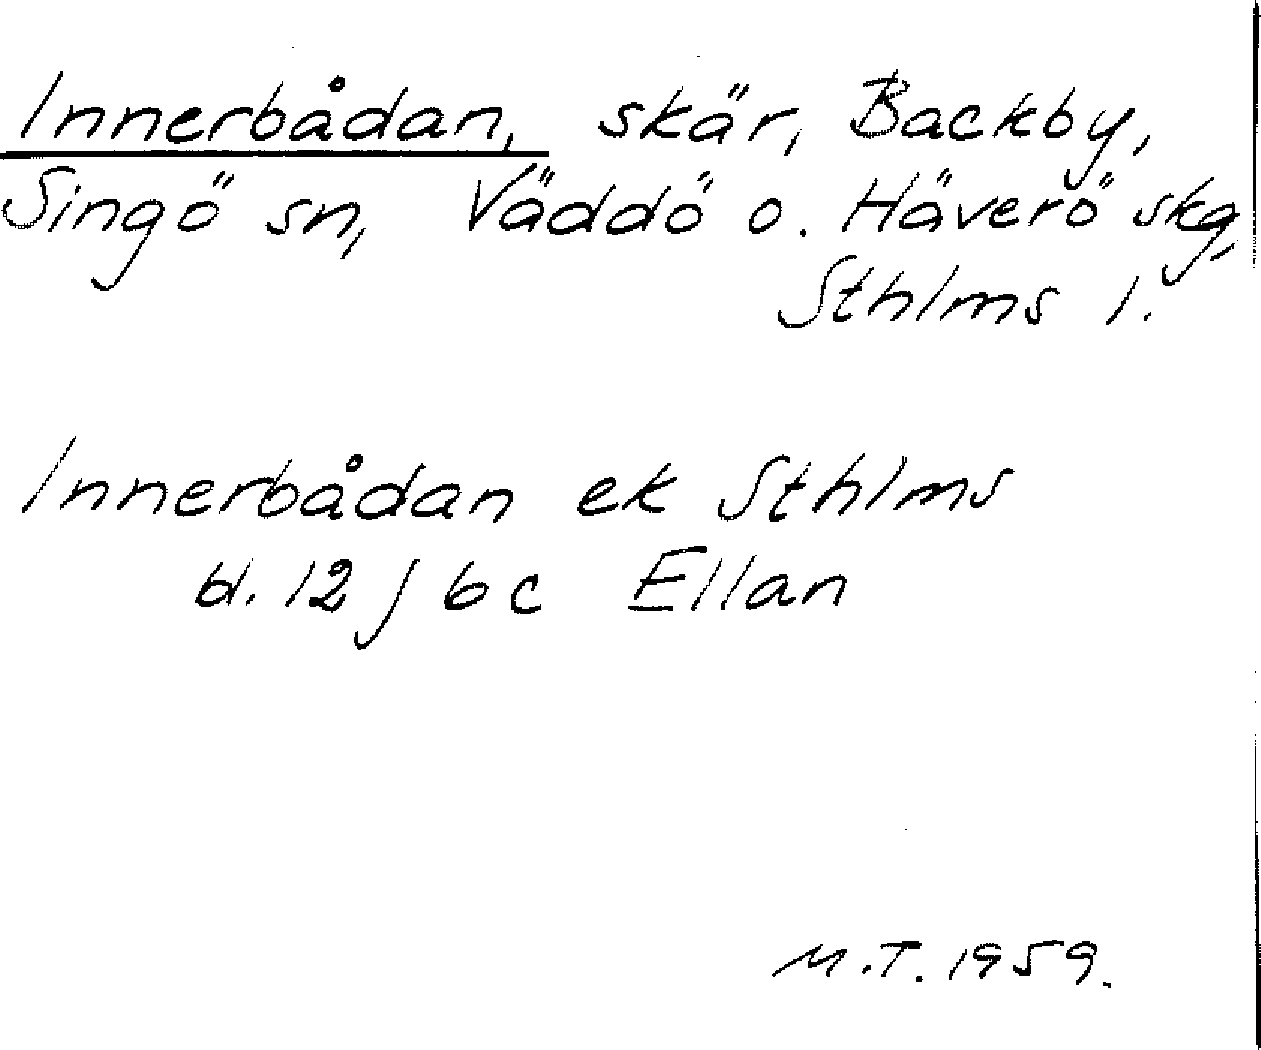 Innerbådan, skär, Backby,
Singö sn, Väddö o. Häverö skg,
Sthlms l.
Innerbådan ek Sthlms
bl. 12 j 6 c Ellan
M.T. 1959.